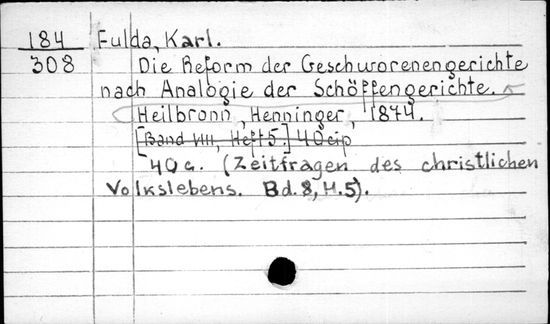 184 Fulda, Karl.
308 Die Reform der Geschworenengerichte
nach Analogie der Schöffengerichte.
Heilbronn, Henninger, 1874.
[Band VIII, Heft 5.] 40
40 c. (Zeitfragen des christlichen
Volkslebens. Bd. 8, H. 5).